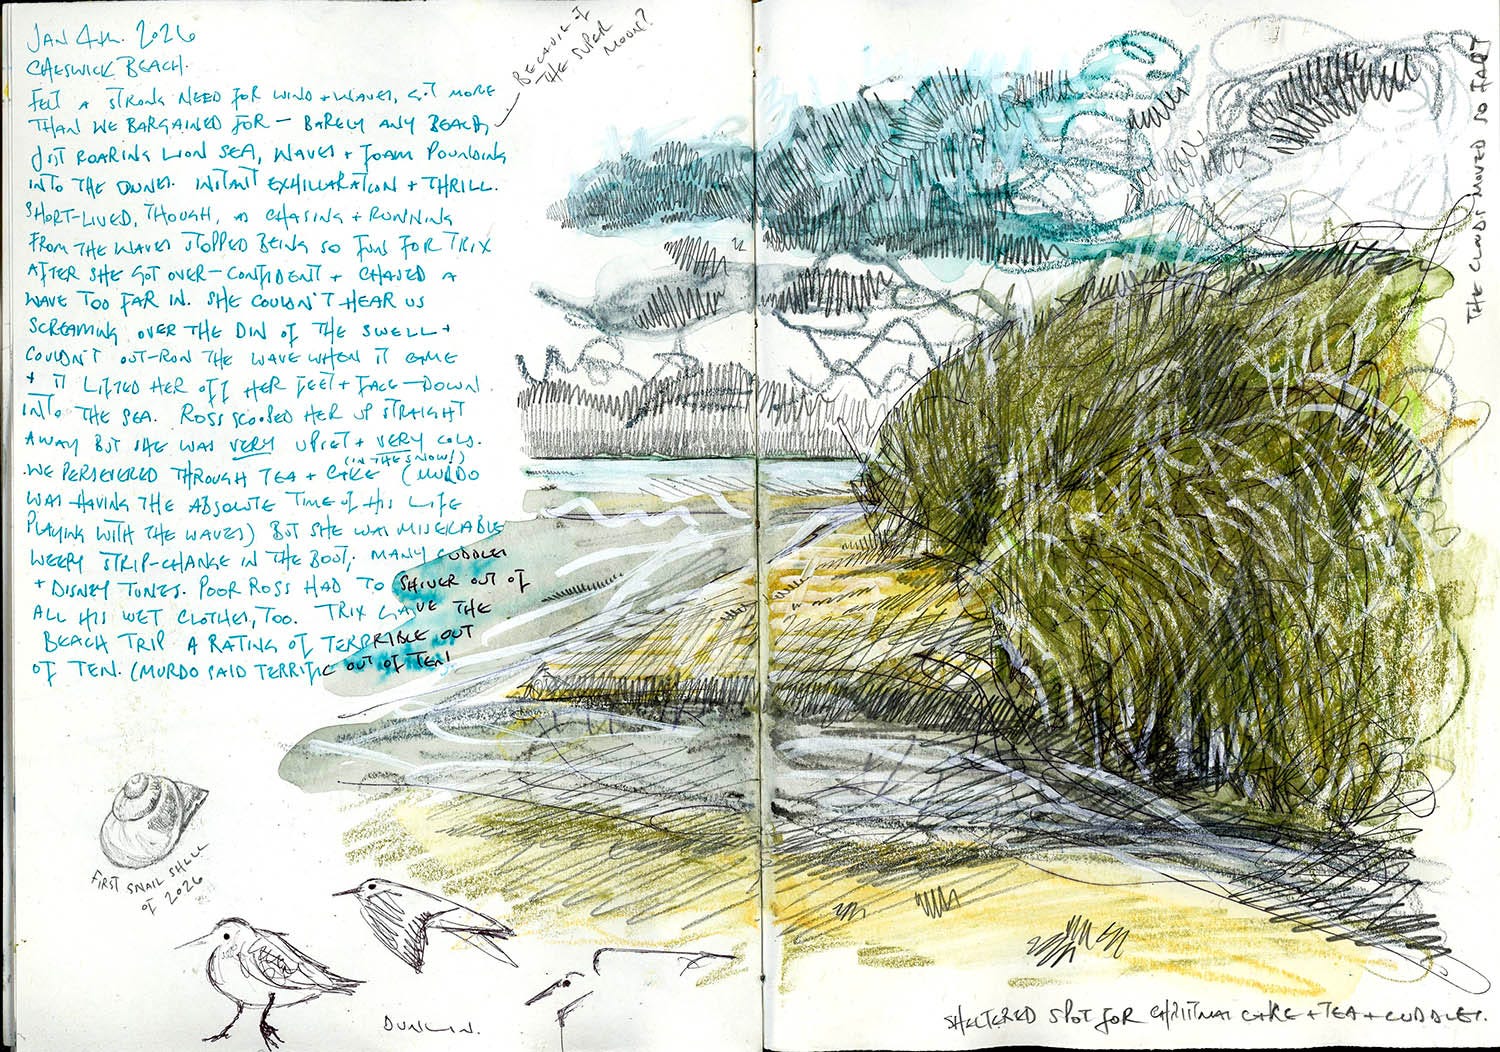 JAN 4th. 2026
CHESWICK BEACH.
FELT A STRONG NEED FOR WIND + WAVES, GOT MORE
THAN WE BARGAINED FOR – BARELY ANY BEACH,
JUST ROARING LION SEA, WAVES + FOAM POUNDING
INTO THE DUNES. INSTANT EXHILLARATION + THRILL.
SHORT-LIVED, THOUGH, AS CHASING + RUNNING
FROM THE WAVES STOPPED BEING SO FUN FOR TRIX
AFTER SHE GOT OVER-CONFIDENT + CHASED A
WAVE TOO FAR IN. SHE COULDN'T HEAR US
SCREAMING OVER THE DIN OF THE SWELL +
COULDN'T OUT-RUN THE WAVE WHEN IT CAME
+ IT LIFTED HER OFF HER FEET + FACE-DOWN
INTO THE SEA. ROSS SCOOPED HER UP STRAIGHT
AWAY BUT SHE WAS VERY UPSET + VERY COLD.
(IN THE SNOW!)
WE PERSEVERED THROUGH TEA + CAKE (MURDO
WAS HAVING THE ABSOLUTE TIME OF HIS LIFE
PLAYING WITH THE WAVES) BUT SHE WAS MISERABLE
WEEPY STRIP-CHANGE IN THE BOOT, MANY CUDDLES
+ DISNEY TUNES. POOR ROSS HAD TO SHIVER OUT OF
ALL HIS WET CLOTHES, TOO. TRIX GAVE THE
BEACH TRIP A RATING OF TERRIBLE OUT
OF TEN. (MURDO SAID TERRIFIC OUT OF TEN!
BECAUSE OF
THE SUPER
MOON?
THE CLOUDS MOVED SO FAST
FIRST SNAIL SHELL
OF 2026
DUNLIN.
SHELTERED SPOT FOR CHRISTMAS CAKE + TEA + CUDDLES.